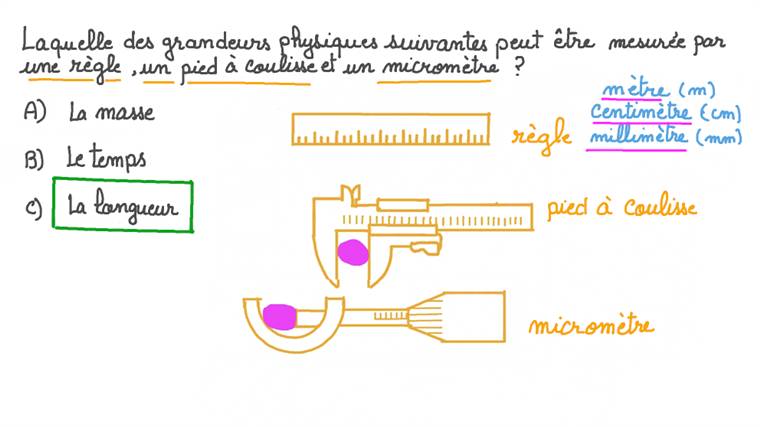 Laquelle des grandeurs physiques suivantes peut être mesurée par
une règle, un pied à coulisse et un micromètre ?
A) La masse
B) Le temps
C) La longueur
mètre (m)
centimètre (cm)
millimètre (mm)
règle
pied à coulisse
micromètre